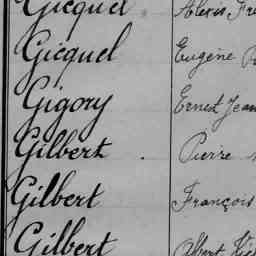 Gicquel Alexis
Gicquel Eugène
Gigory Ernest Jean
Gilbert Pierre
Gilbert François
Gilbert Albert